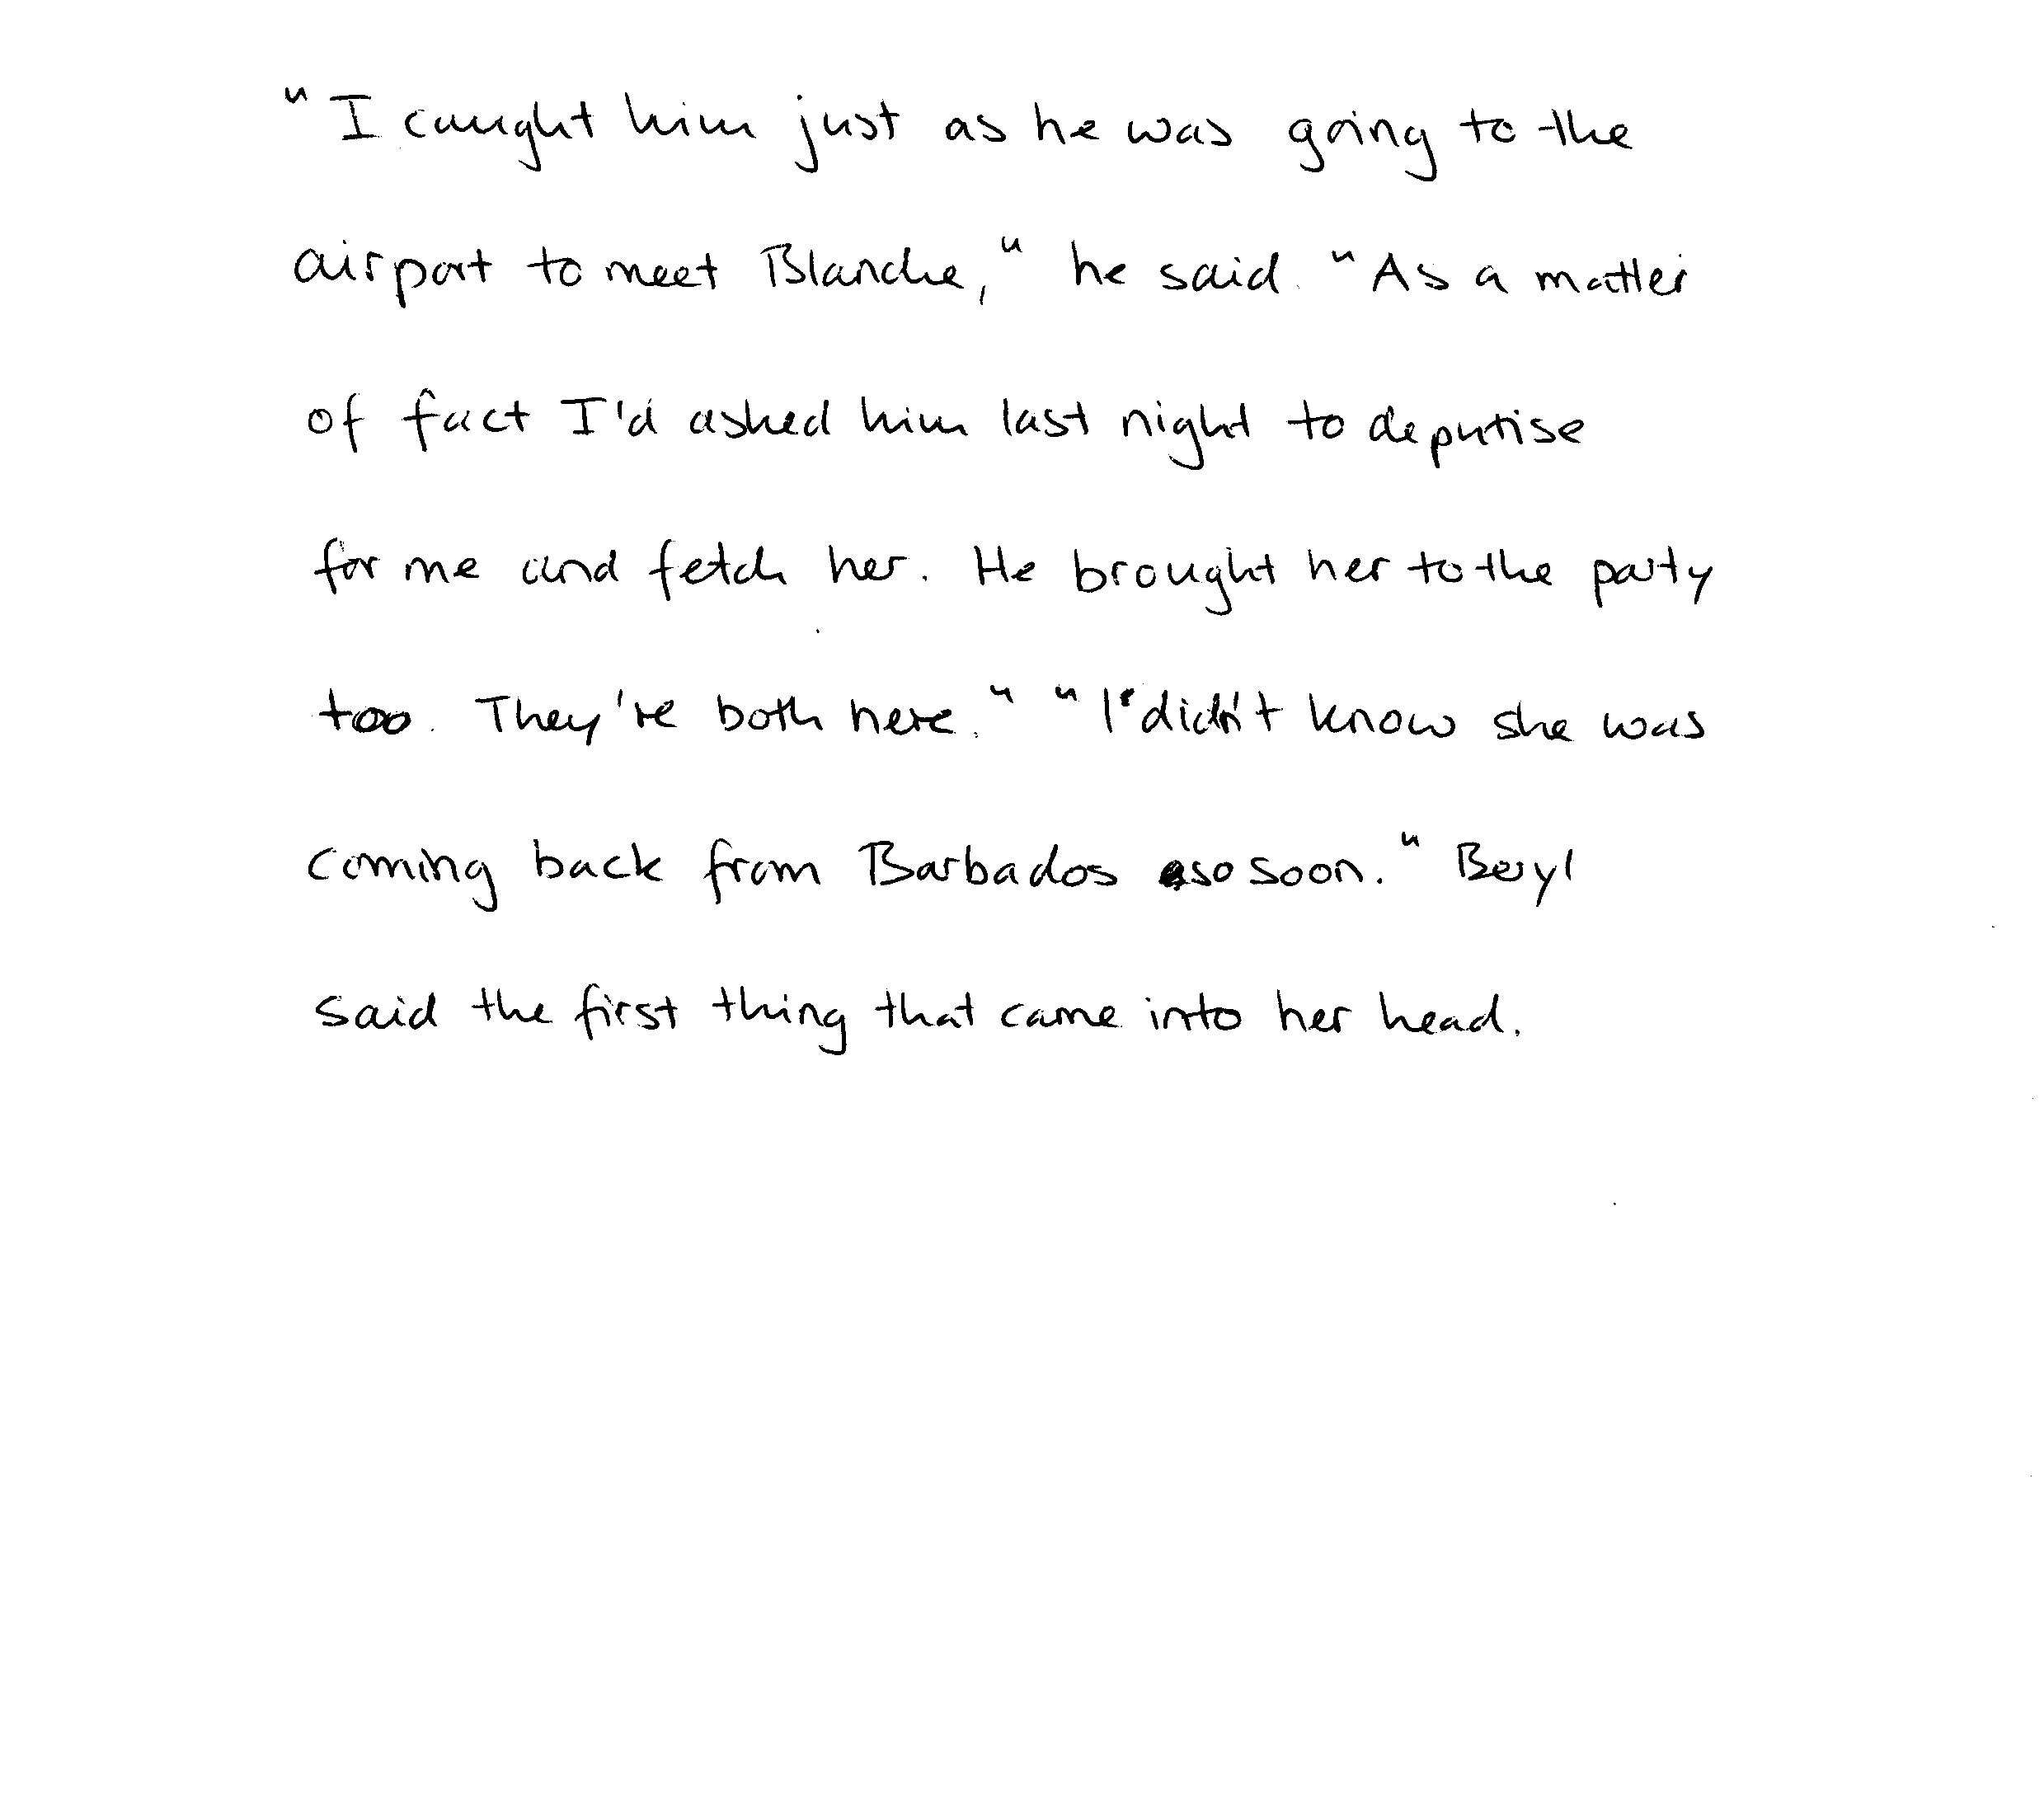 "I caught him just as he was going to the
airport to meet Blanche," he said. "As a matter
of fact I'd asked him last night to deputise
for me and fetch her. He brought her to the party
too. They're both here." "I didn't know she was
coming back from Barbados so soon." Beryl
said the first thing that came into her head.